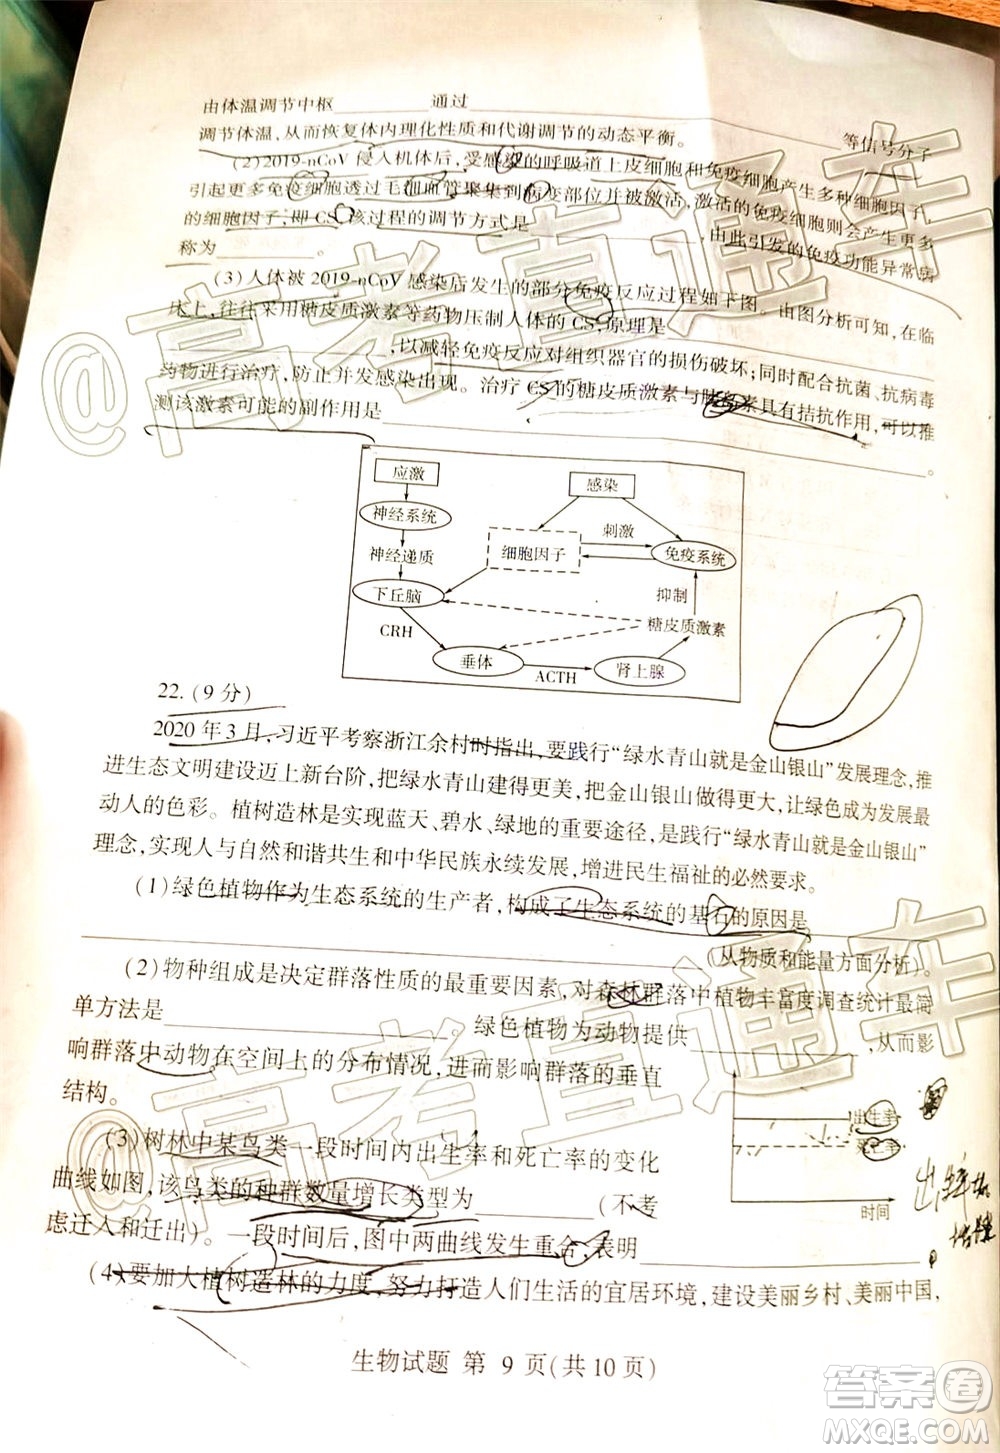 由体温调节中枢________通过________等信号分子
调节体温,从而恢复体内理化性质和代谢调节的动态平衡。
(2)2019-nCoV 侵入机体后,受感染的呼吸道上皮细胞和免疫细胞产生多种细胞因子,
引起更多免疫细胞透过毛细血管聚集到病变部位并被激活,激活的免疫细胞则会产生更多
的细胞因子,即CS,该过程的调节方式是________,由此引发的免疫功能异常病
称为________。
(3)人体被 2019-nCoV 感染后发生的部分免疫反应过程如下图。由图分析可知,在临
床上,往往采用糖皮质激素等药物压制人体的CS,原理是________
________,以减轻免疫反应对组织器官的损伤破坏;同时配合抗菌、抗病毒
药物进行治疗,防止并发感染出现。治疗 CS的糖皮质激素与胰岛素具有拮抗作用,可以推
测该激素可能的副作用是________。
应激
感染
神经系统
刺激
神经递质
细胞因子
免疫系统
下丘脑
抑制
CRH
糖皮质激素
垂体
ACTH
肾上腺
22.(9分)
2020年3月,习近平考察浙江余村时指出,要践行“绿水青山就是金山银山”发展理念,推
进生态文明建设迈上新台阶,把绿水青山建得更美,把金山银山做得更大,让绿色成为发展最
动人的色彩。植树造林是实现蓝天、碧水、绿地的重要途径,是践行“绿水青山就是金山银山”
理念,实现人与自然和谐共生和中华民族永续发展,增进民生福祉的必然要求。
(1)绿色植物作为生态系统的生产者,构成了生态系统的基石的原因是
________(从物质和能量方面分析)。
(2)物种组成是决定群落性质的最重要因素,对森林群落中植物丰富度调查统计最简
单方法是________。绿色植物为动物提供________,从而影
响群落中动物在空间上的分布情况,进而影响群落的垂直
结构。
出生率
死亡率
时间
(3)树林中某鸟类一段时间内出生率和死亡率的变化
曲线如图,该鸟类的种群数量增长类型为________(不考
虑迁入和迁出)。一段时间后,图中两曲线发生重合,表明________。
(4)要加大植树造林的力度,努力打造人们生活的宜居环境,建设美丽乡村、美丽中国,
生物试题 第 9 页(共10页)
@高考直通车
@高考直通车
答案卷
MXQE.COM